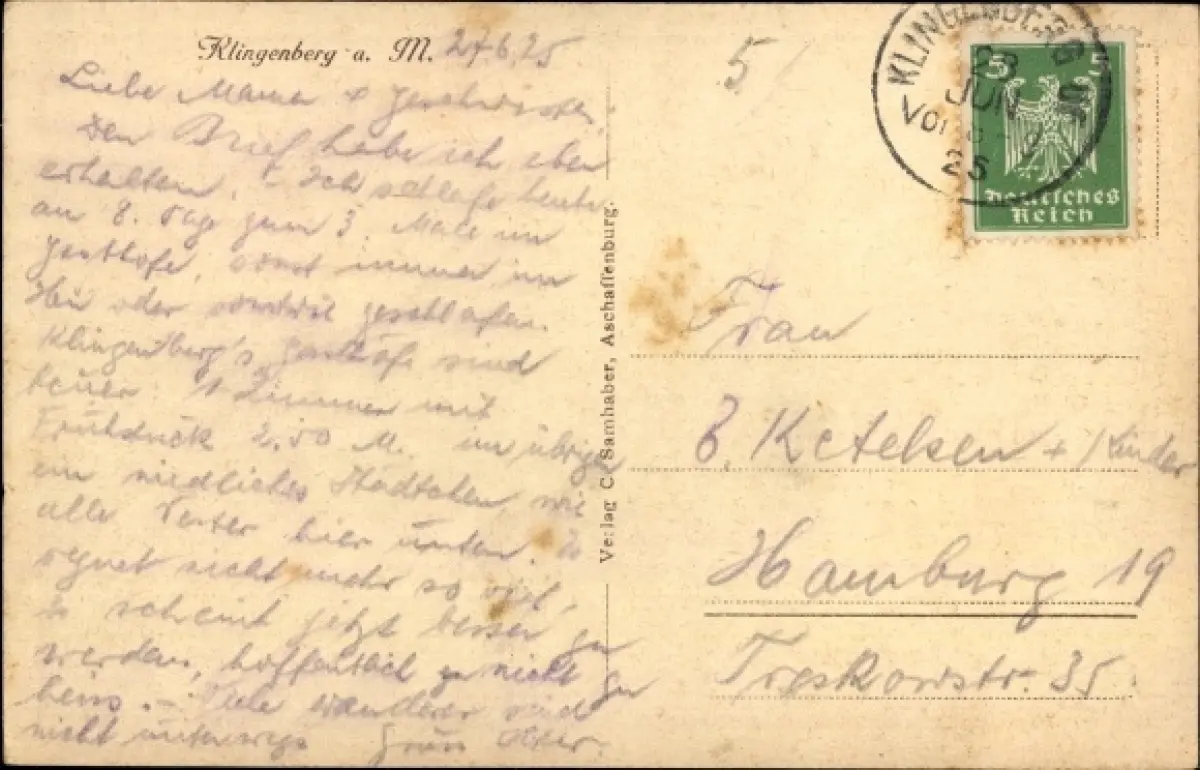 Klingenberg a. M. 27.6.25
Liebe Mama + Geschwister,
Den Brief habe ich eben
erhalten. Ich schlafe heute
am 8. Tage zum 3. Male im
Gasthofe, sonst immer im
Heu oder geschlafen.
Klingenberg's Gasthöfe sind
teuer 1 Zimmer mit
Frühstück 2.50 M. im übrigen
ein niedliches Städtchen wie
alle hier unten. Es
regnet nicht mehr so viel,
Es scheint jetzt besser zu
werden, hoffentlich nicht zu
heiss. – Viele Wanderer sind
nicht unterwegs Gruss
Verlag C. Samhaber, Aschaffenburg.
5
KLINGENBERG
28
JUN
Vor. 8-9
25
5 5
Deutsches
Reich
Frau
Ketelsen + Kinder
Hamburg 19
Treskowstr. 35